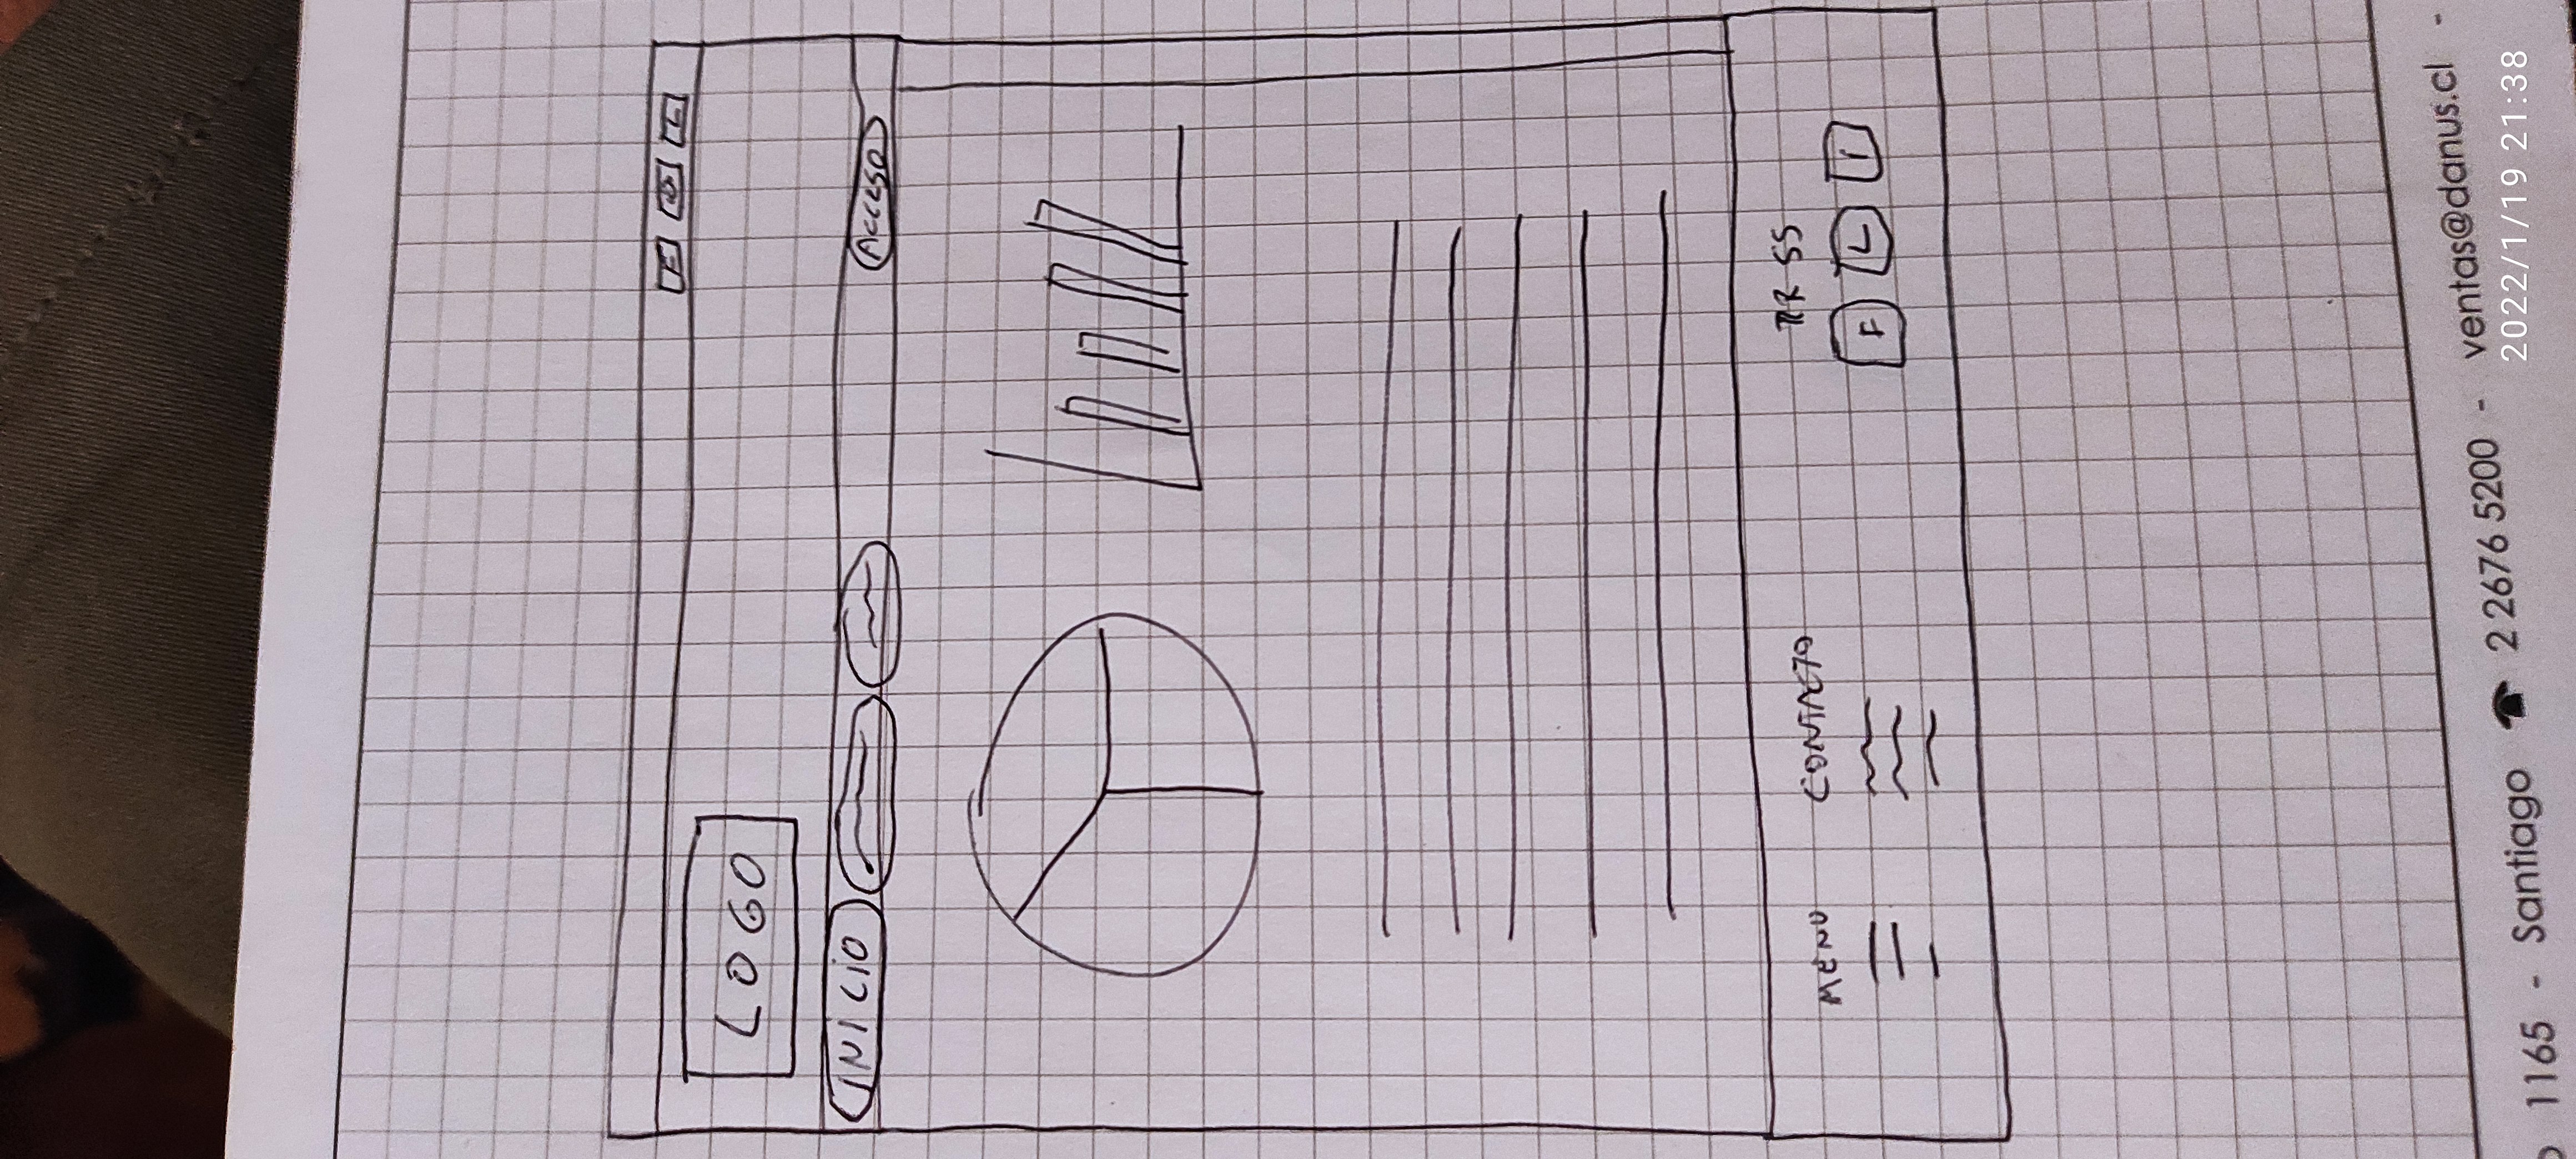 F L
LOGO
INICIO Acceso
MENU CONTACTO RRSS
F L I
1165 - Santiago ☎ 2 2676 5200 - ventas@danus.cl -
2022/1/19 21:38